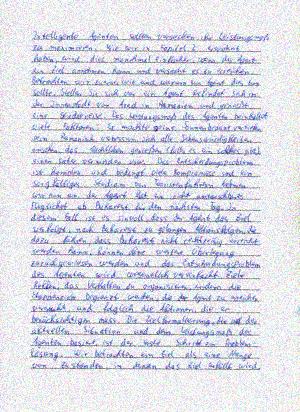 Intelligente Agenten sollten versuchen ihr Leistungsmaß
zu maximieren. Wie wir in Kapitel 2 erwähnt
haben, wird dies manchmal einfacher, wenn der Agent
ein Ziel annehmen kann und versucht es zu erreichen.
Betrachten wir zuerst wie und warum ein Agent dies tun
sollte. Stellen Sie sich vor, ein Agent befindet sich in
der Innenstadt von Arad in Rumänien und genießt
eine Rundreise. Das Leistungsmaß des Agenten beinhaltet
viele Faktoren. Er möchte seine Sonnenbräune
sein Rumänisch verbessern und alle Sehenswürdigkeiten
Das Entscheidungsproblem
ist komplex und bedingt viele Kompromisse und ein
sorgfältiges Studium von Reiseführern
nun an, der Agent hat ein nicht
Flugticket ab Bukarest für den nächsten Tag. In
diesem Fall ist es sinnvoll, dass der Agent das Ziel
verfolgt, nach Bukarest zu gelangen. Aktionsfolgen, die
dazu führen, dass Bukarest nicht rechtzeitig erreicht
werden kann, können ohne weitere Überlegung
zurückgewiesen werden und das Entscheidungsproblem
des Agenten wird wesentlich vereinfacht. Ziele
helfen, das Verhalten zu organisieren, indem die
begrenzt werden, die der Agent zu erreichen
versucht und folglich die Aktionen, die er
berücksichtigen muss. Die Zielformulierung, die auf der
aktuellen Situation und dem Leistungsmaß des
Agenten basiert, ist der erste Schritt zur Problem-
lösung. Wir betrachten ein Ziel als eine Menge
von Zuständen, in denen das Ziel erfüllt wird.